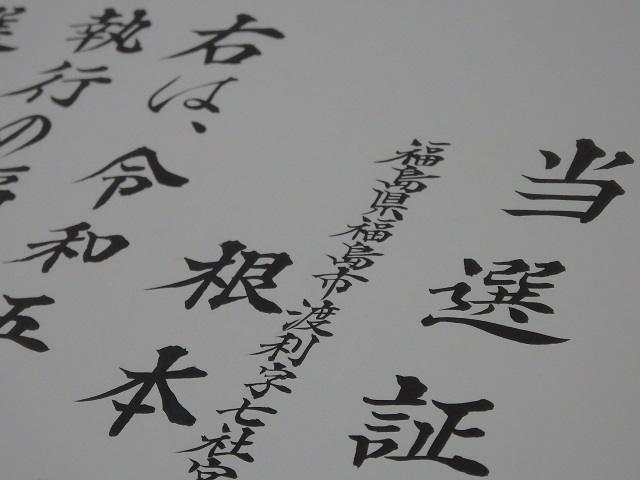 当選証
福島県福島市渡利字七社宮
根本
右は、令和五
執行の